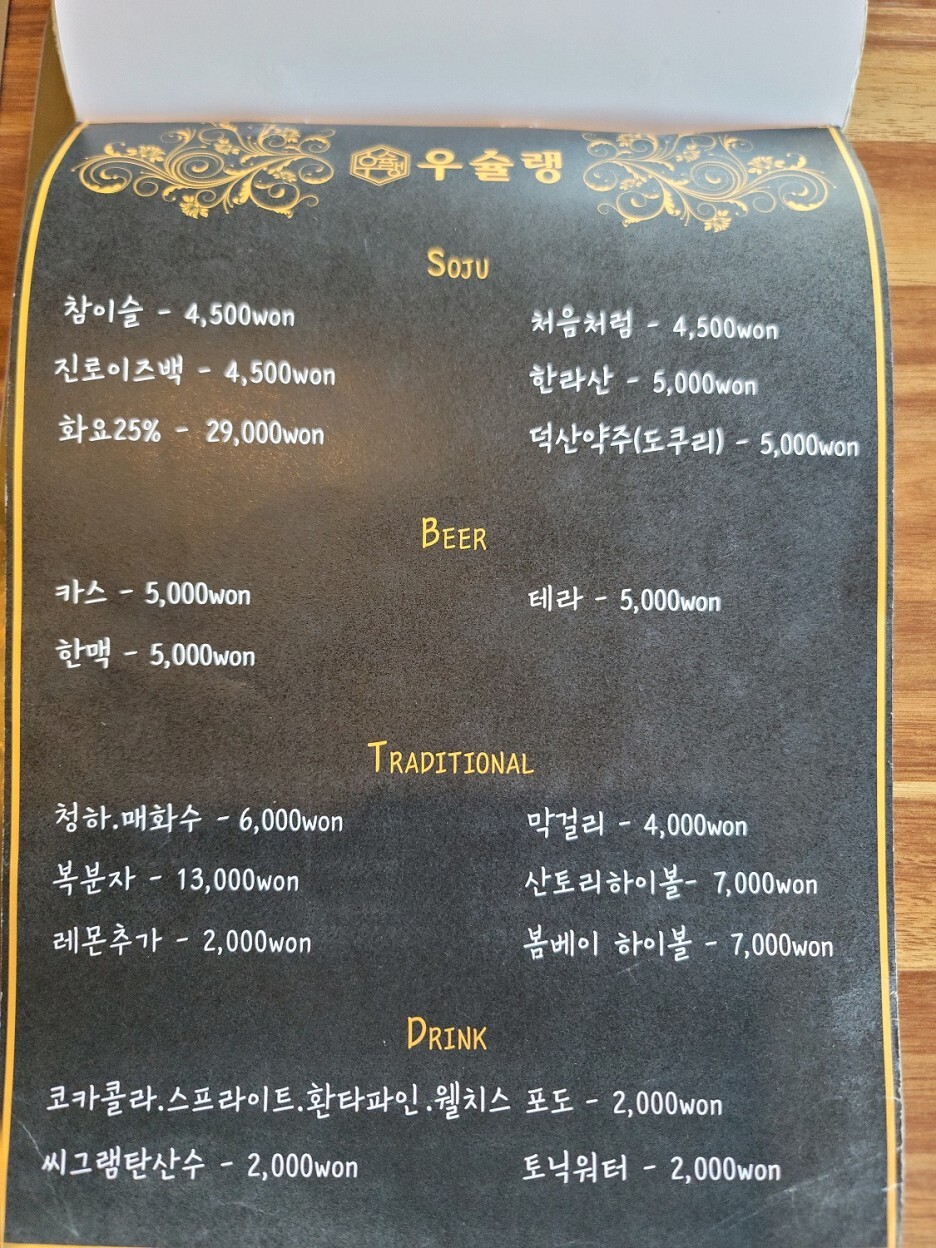 우슐랭 우슐랭
SOJU
참이슬 - 4,500won
처음처럼 - 4,500won
진로이즈백 - 4,500won
한라산 - 5,000won
화요25% - 29,000won
덕산약주(도쿠리) - 5,000won
BEER
카스 - 5,000won
테라 - 5,000won
한맥 - 5,000won
TRADITIONAL
청하.매화수 - 6,000won
막걸리 - 4,000won
복분자 - 13,000won
산토리하이볼- 7,000won
레몬추가 - 2,000won
봄베이 하이볼 - 7,000won
DRINK
코카콜라.스프라이트.환타파인.웰치스 포도 - 2,000won
씨그램탄산수 - 2,000won
토닉워터 - 2,000won